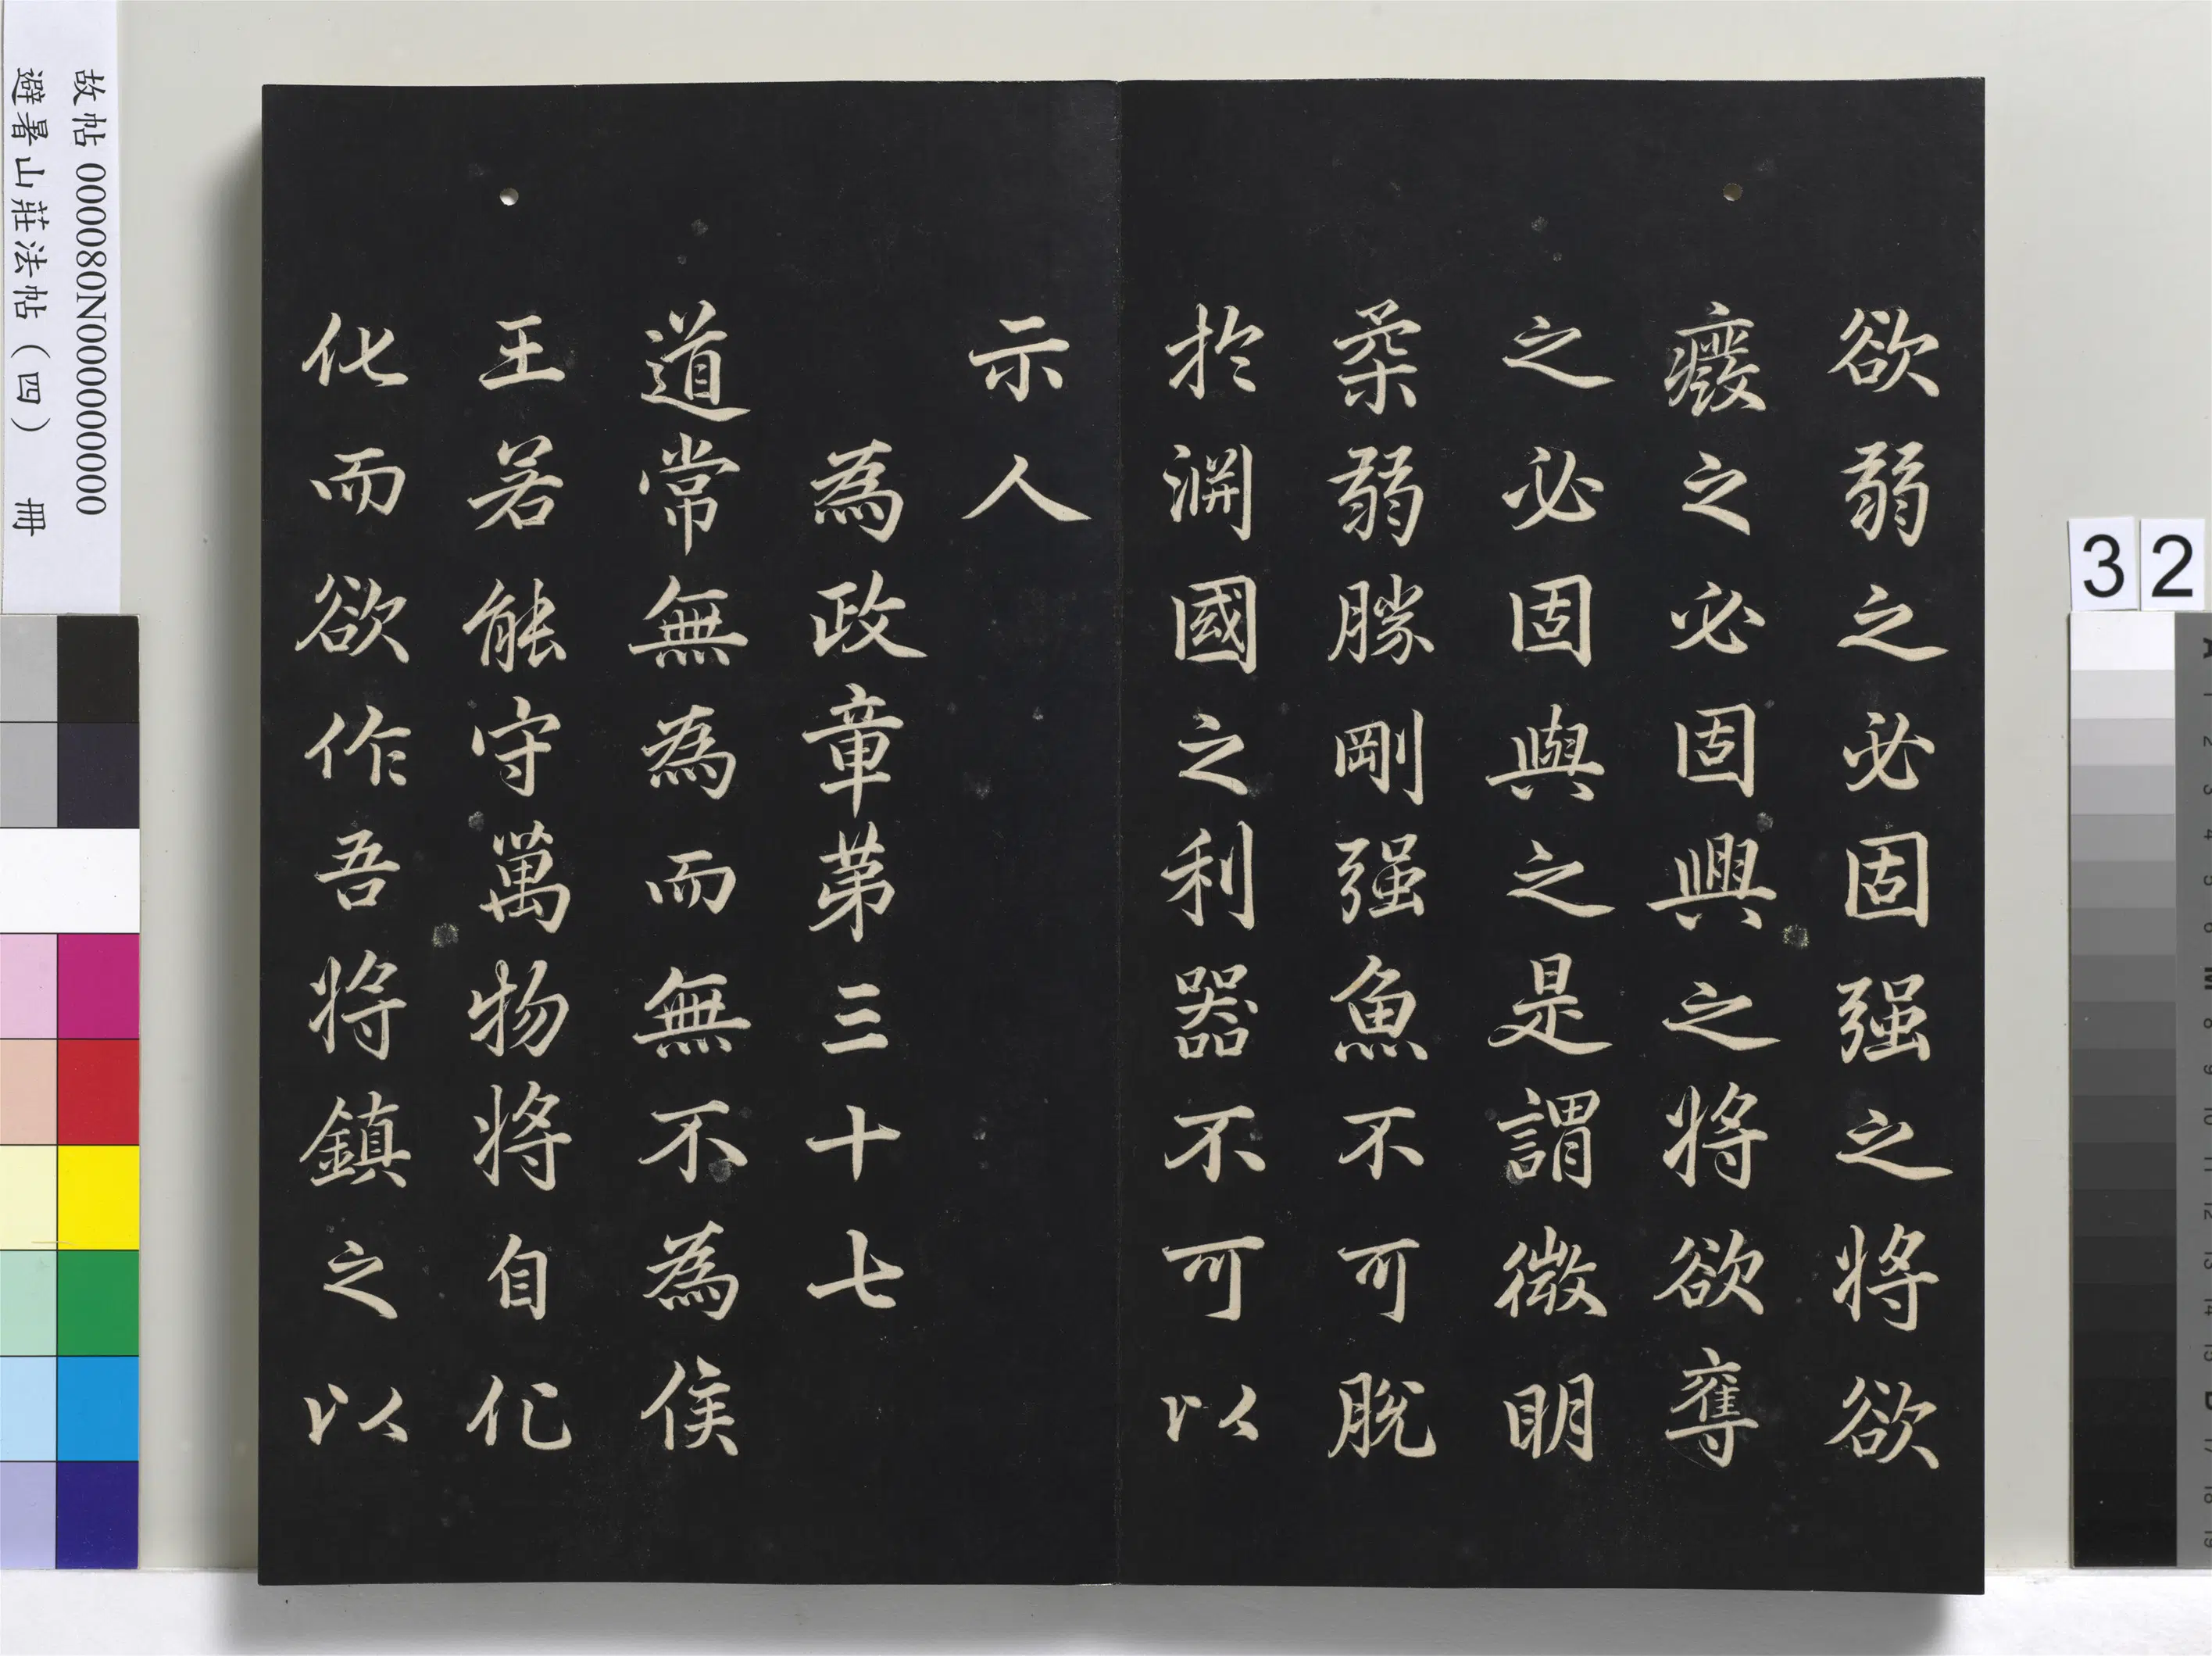 欲弱之必固强之將欲
癈之必固興之將欲奪
之必固與之是謂微明
柔弱勝剛强魚不可脫
於淵國之利器不可以
示人
為政章第三十七
道常無為而無不為侯
王若能守萬物將自化
化而欲作吾將鎮之以
故帖 000080N000000000
避暑山莊法帖（四） 冊
32